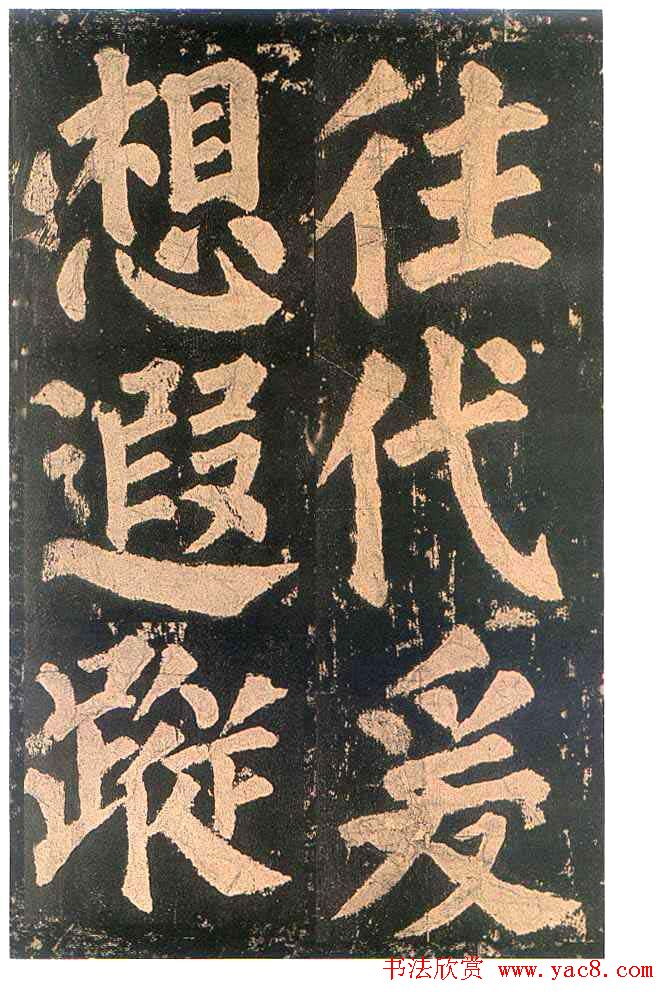 往代爰
想遐蹤
书法欣赏 www.yac8.com